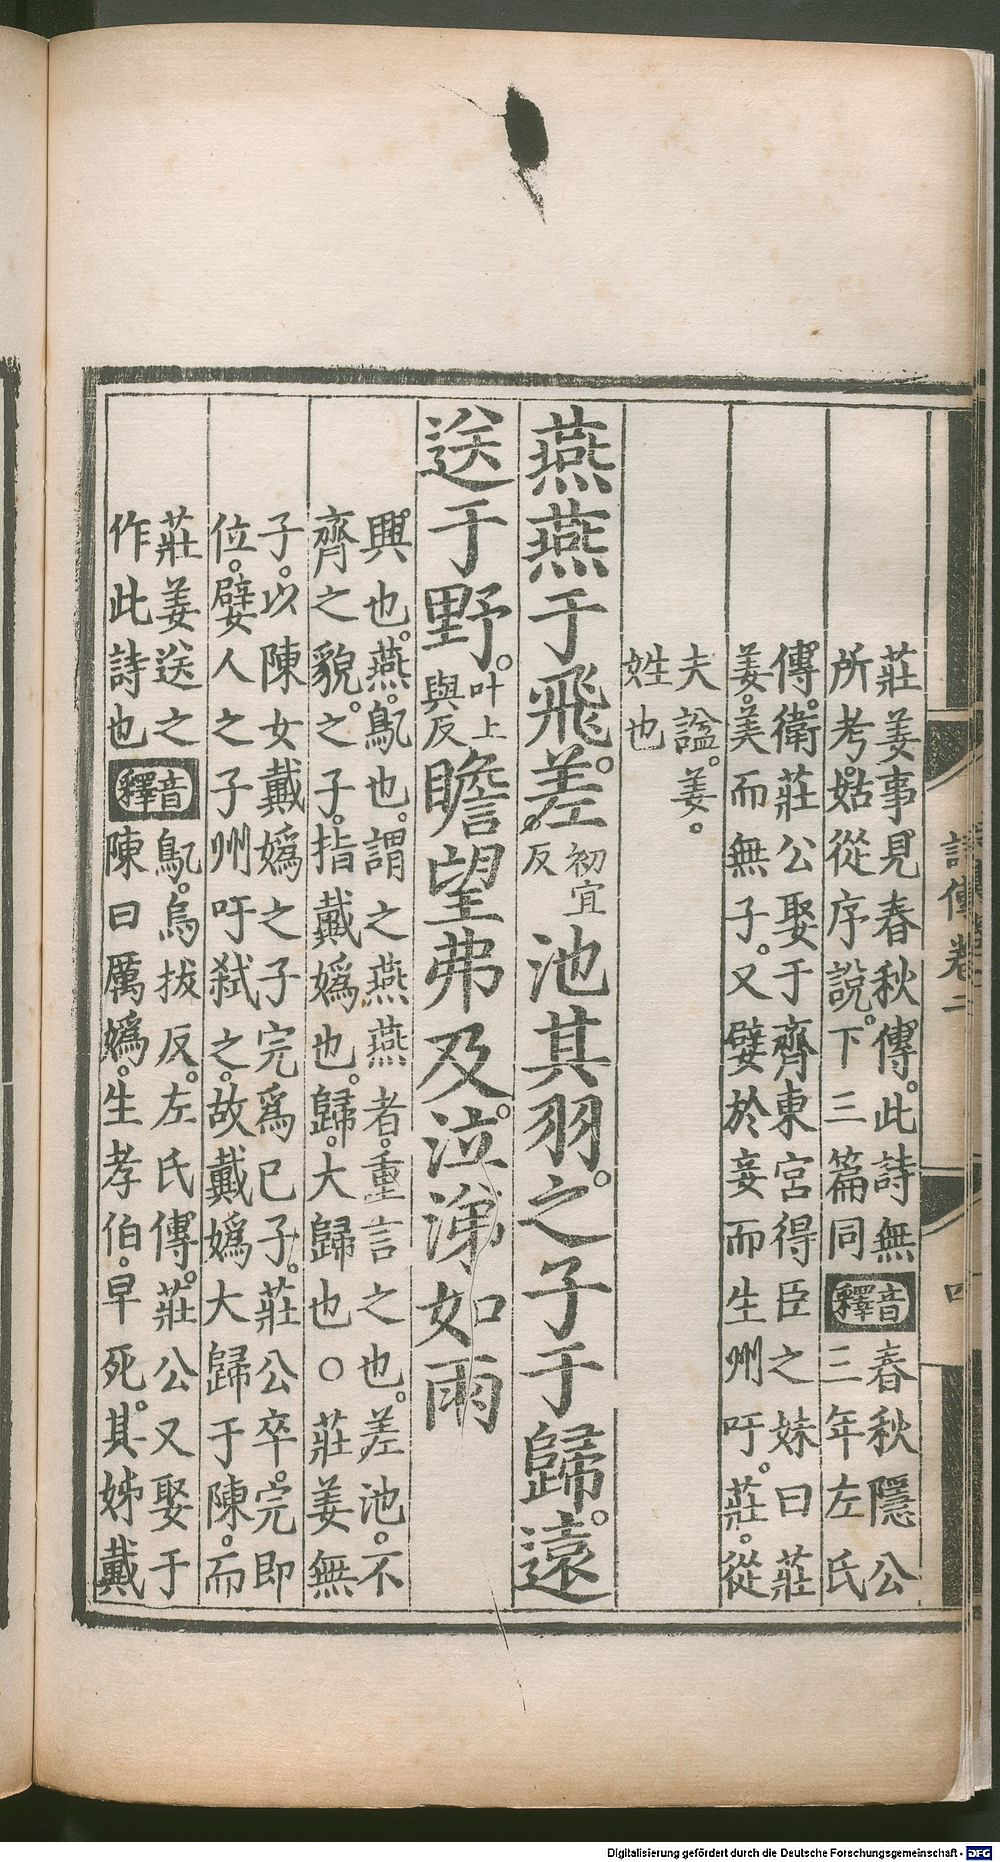 莊姜事見春秋傳。此詩無
所考。姑從序說。下三篇同
音釋
春秋隱公
三年左氏
傳。衛莊公娶于齊東宮得臣之妹曰莊
姜。美而無子。又嬖於妾而生州吁。莊。從
夫諡。姜。
姓也
燕燕于飛。差
初宜
反
池其羽。之子于歸。遠
送于野。
叶上
與反
瞻望弗及。泣涕如雨
興也。燕。鳦也。謂之燕燕者。重言之也。差池。不
齊之貌。之子。指戴媯也。歸。大歸也○莊姜無
子。以陳女戴媯之子完爲己子。莊公卒。完即
位。嬖人之子州吁弑之。故戴媯大歸于陳。而
莊姜送之
作此詩也
音釋
鳦。烏拔反。左氏傳。莊公又娶于
陳曰厲媯。生孝伯。早死。其娣戴
詩傳卷二
Digitalisierung gefördert durch die Deutsche Forschungsgemeinschaft - DFG